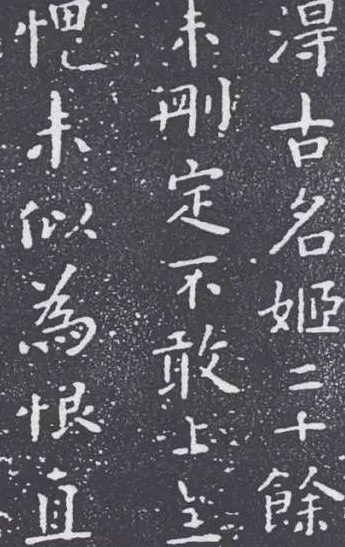 淂古名姬二十餘
未刪定不敢上呈
愧未似為恨直